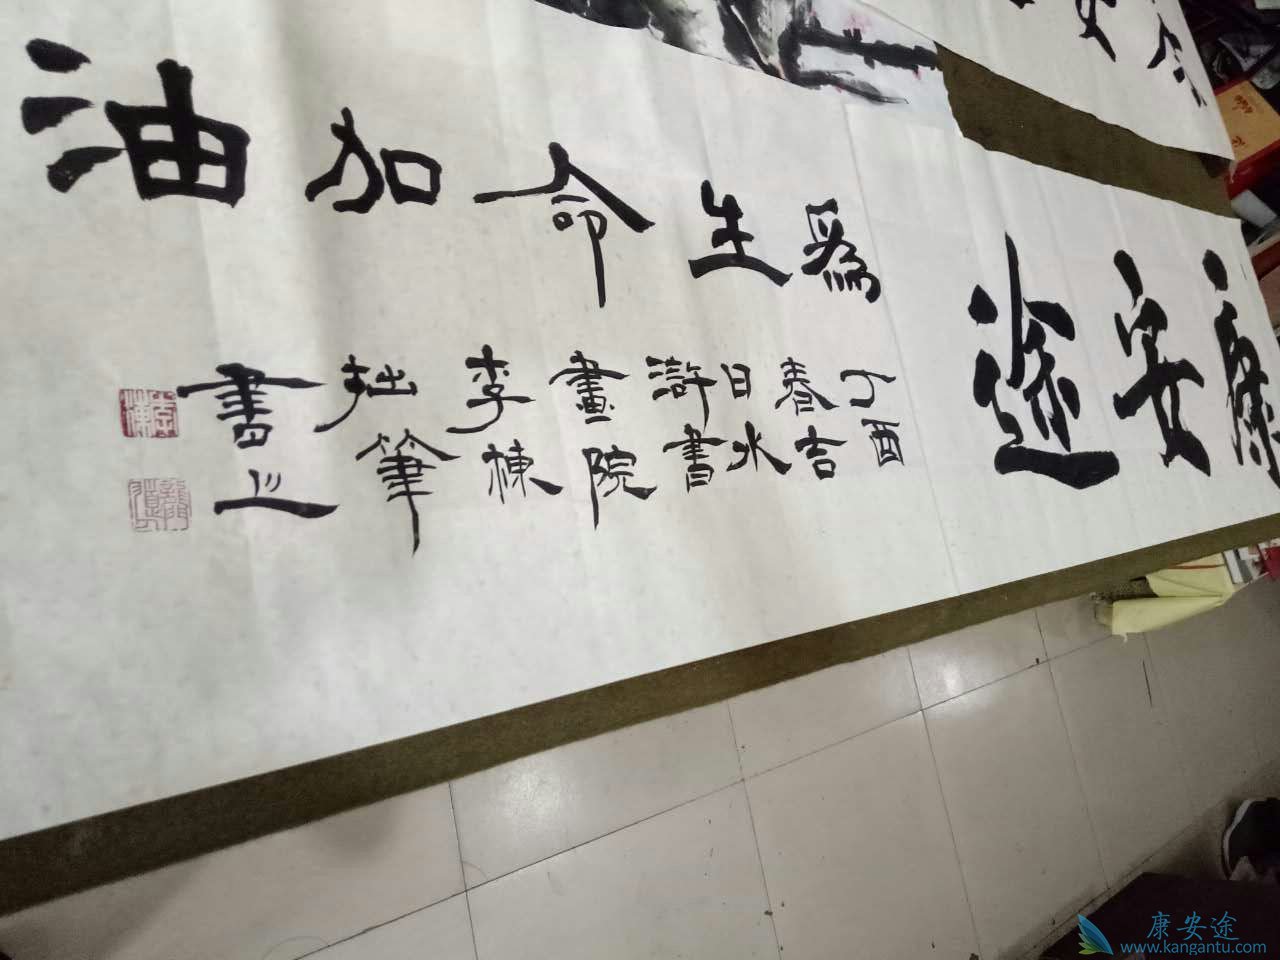 康安途
為生命加油
丁酉
春吉
日水
滸書
畫院
李棟
拙筆
書之
康安途
www.kangantu.com